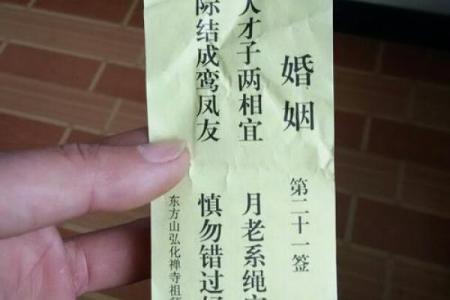 婚姻
第二十一签
人才子两相宜
月老系绳
际结成鸾凤友
慎勿错过好
东方山弘化禅寺祖师